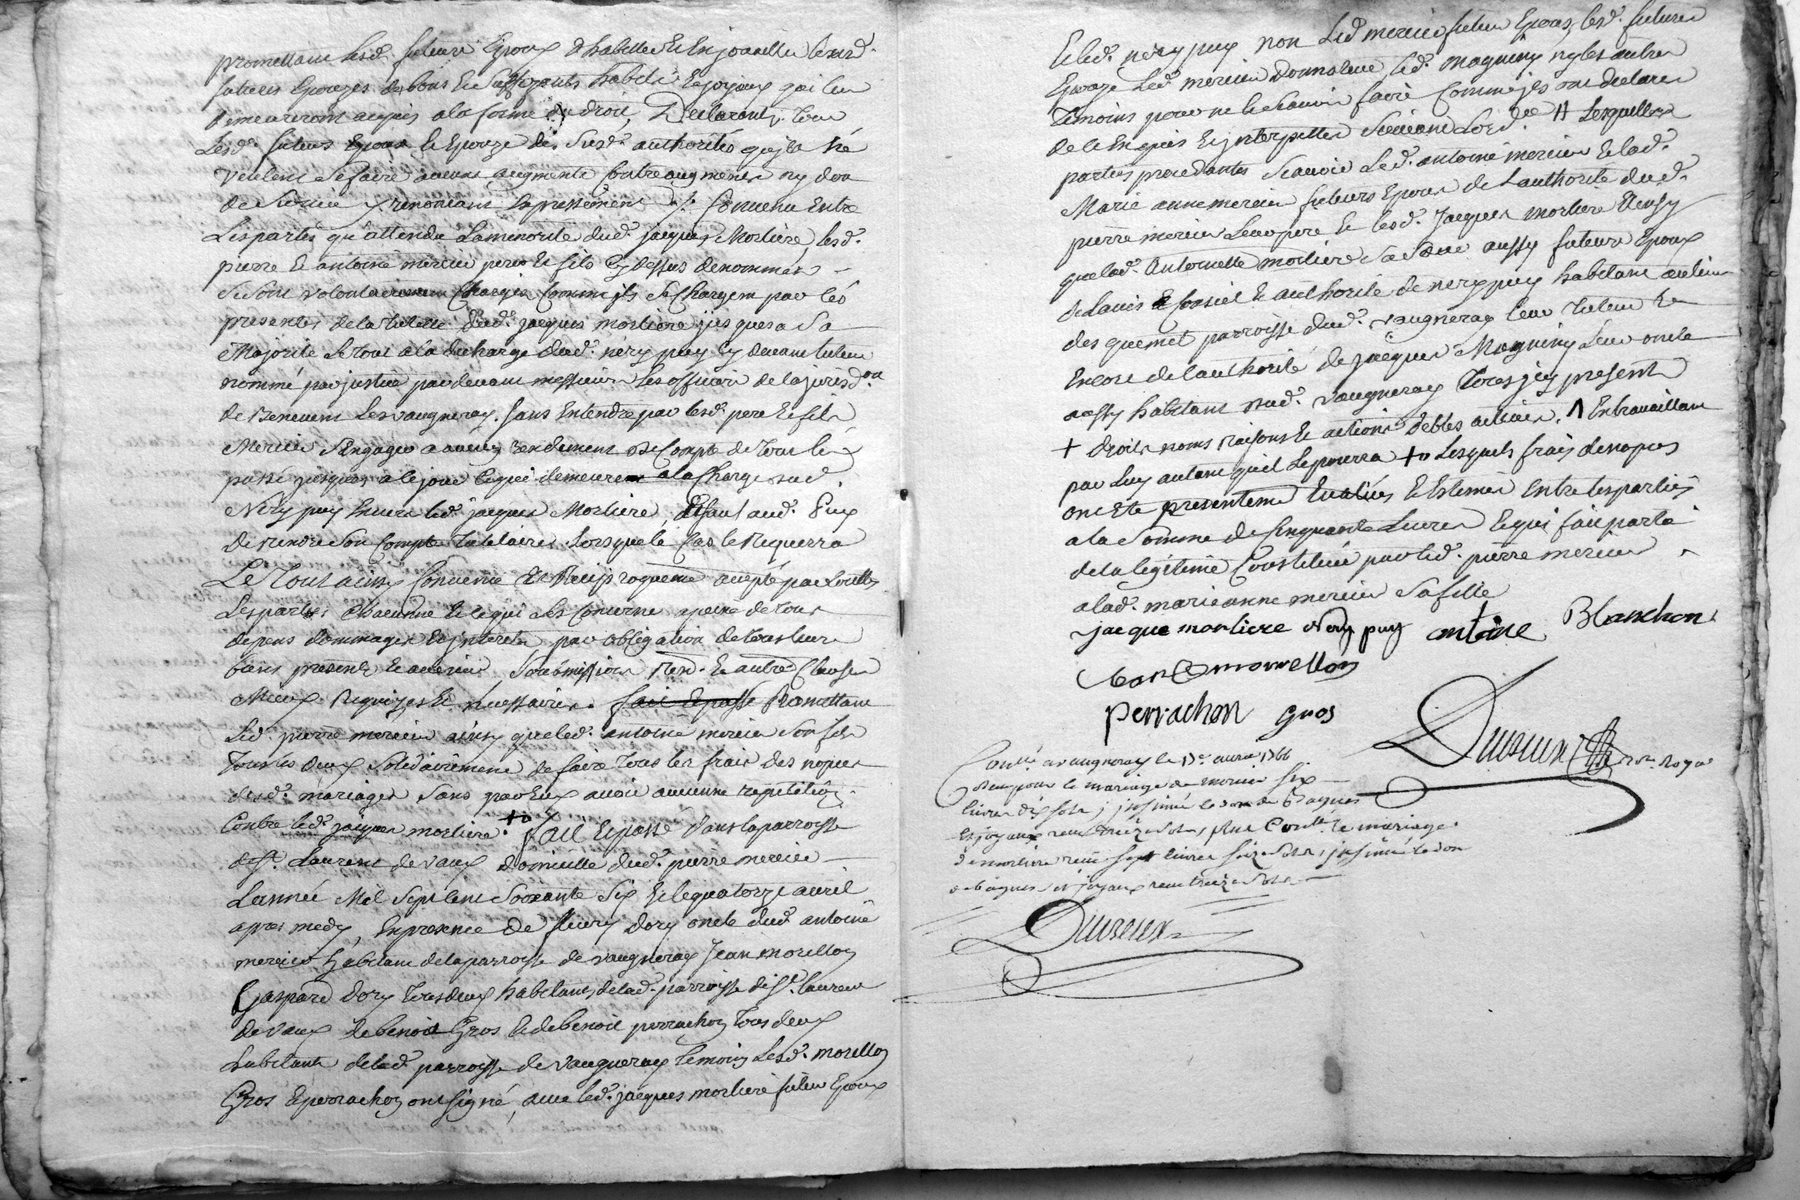 promettant lesd. futurs Epoux d'habiller & Enjoailler lesd.
futures Epouzes de bons & suffizants habits & joyaux qui leur
demeureront acquis a la forme du droit, Declarants tous
Lesd. futurs Epoux & Epouze des susd. authorités qu'jls né
veulent se faire aucuns augments Contre augments ny don
de survie y renonçant Expressement Convenu Entre
Les parties qu'attendu La minorité dud. jacques Morliere, lesd.
pierre & antoine mercier pere & fils Cy dessus denommés
se sont volontairement Chargés Comm'ils se Chargent par lés
presentes de la tutelle dud. jacques morliere jusques a sa
Majorité Le tout a la decharge dud. néry puy Cy devant tuteur
nommé par justice pardevant messieurs Les officiers de la jurisd.on
de Benevent Les vaugneray, sans Entendre par lesd. pere & fils
Mercier s'Engager a aucun rendement de Compte de tout le
passé jusques a le jour Ce qui demeure a la Charge dud.
Néry puy Envers led. jacques Morliere, sauf aud. Puy
de rendre son Compte tutelaire Lorsque le Cas le requerra
Le tout ainsy Convenu & Reciproquement accepté par toutes
Les parties Chacunne En ce qui Les Concerne a peine de tous
depens dommages & interets par obligation de tous leurs
biens presents & avenirs soubmissions Rend. & autres Clauses
Mieux Requizes & necessaires. fait & passé Promettant
Led. pierre mercier ainsy que led. antoine mercier son fils
Tous les deux solidairement de faire tous les frais des nopces
desd. mariages sans pouvoir avoir aucune repetition
Contre led. jacques morliere. + Fait & passé dans la parroisse
de St. Laurent de vaux domicille dud. pierre mercier
L'année Mil sept Cent Soixante Six & le quatorze avril
apres midy, En presence de fleury dory oncle dud. antoine
mercier habitant de la parroisse de vaugneray Jean morellon
Gaspard dory tous deux habitants de lad. parroisse de St. Laurent
de vaux de benoit Gros & de benoit perrachon tous deux
habitants de lad. parroisse de vaugneray temoins Lesd. morellon
Gros & perrachon ont signé, avec led. jacques morliere futur Epoux
& led. néry puy non Led. mercier futur Epoux, lesd. futures
Epouze Led. mercier Led. Magniny ny les autres
Temoins pour ne le scavoir faire Comme jls ont declaré
de ce Enquis & interpellés suivant Lord.ce Lesquelles
parties procedantes scavoir Led. antoine mercier & lad.
Marie anne mercier futurs Epoux de L'authorité dud.
pierre mercier Leur pere & lesd. jacques morliere Ainsy
que lad. Antoinette morliere sa sœur aussy futurs Epoux
de L'avis & Conseil & authorité de nery puy habitant au lieu
des quemet parroisse dud. vaugneray leur tuteur &
Encore de l'authorité de jacques Magniny Leur oncle
aussy habitant dud. vaugneray tous jcy presents
+ droits noms raisons & actions debtes actives, Λ En travaillant
par Luy autant qu'il Le pourra + Lesquels frais de nopces
ont Eté presentement Evalués & Estimés Entre Les parties
a la somme de Cinquante Livres Ce qui fait partie
de la légitime Constituée par led. pierre mercier
a lad. marie anne mercier sa fille
jacque morliere Nery puy antoine Blanchon
Jean morrellon
perrachon gros
Duvieux not. royal
Con.lé a vaugneray le 17e avril 1766
Reçu pour le mariage de mercier six
livres dix sols, jnsinué le don de Bagues
Et joyaux reçu treize sols, plus Con.lé le mariage
de morliere reçu sept livres seize sols, jnsinué le don
de bagues et joyaux reçu treize sols
Duvieux